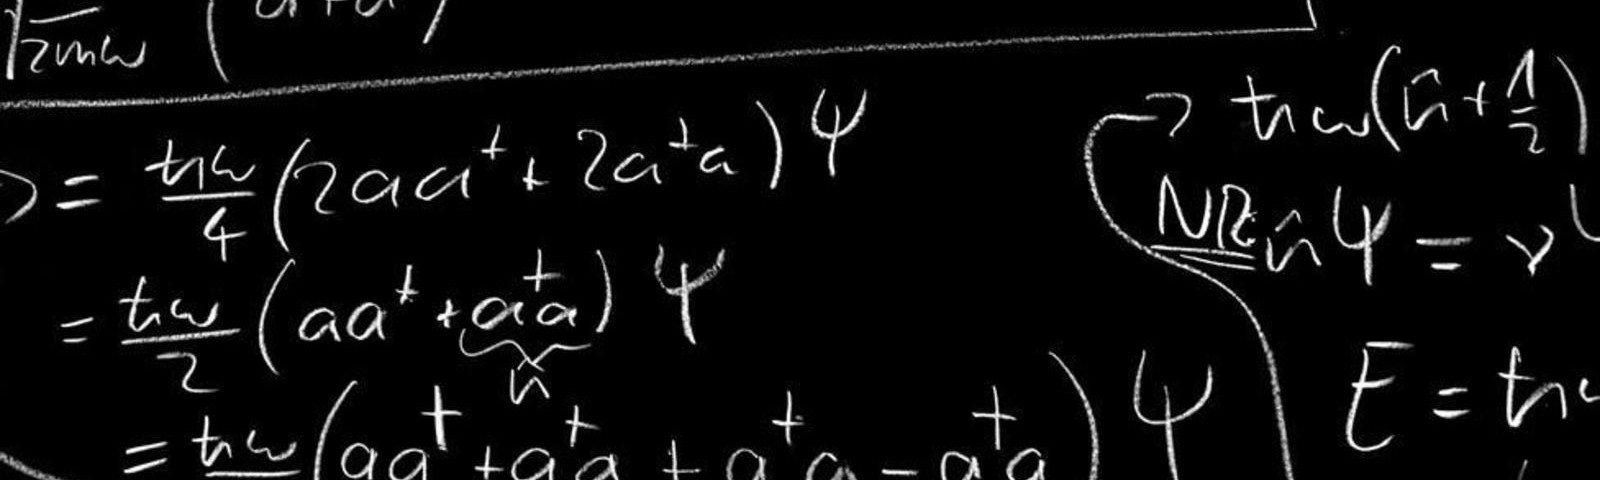 √2mω (a+a)
= ħω/4 (2aa† + 2a†a) Ψ
= ħω/2 (aa† + a†a) Ψ
n̂
= ħω (aa† + a†a + a†a − a†a) Ψ
→ ħω(n̂ + 1/2)
NR: n̂Ψ = ν
E = ħω